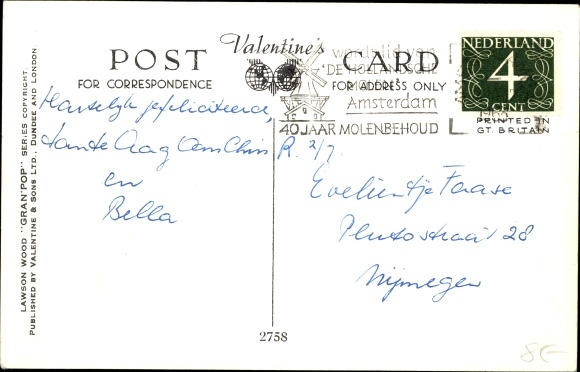 Valentine's
POST CARD
FOR CORRESPONDENCE
FOR ADDRESS ONLY
wordt lid van
"DE HOLLANDSCHE
MOLEN"
Amsterdam
40 JAAR MOLENBEHOUD
NEDERLAND
4
CENT
PRINTED IN
GT. BRITAIN
Hartelijk gefeliciteerd,
tante Aag Oom Chris
en
Bella
R. 2/7.
Evelientje Faase
Plutostraat 28
Nijmegen
LAWSON WOOD "GRAN'POP" SERIES COPYRIGHT.
PUBLISHED BY VALENTINE & SONS LTD., DUNDEE AND LONDON
2758